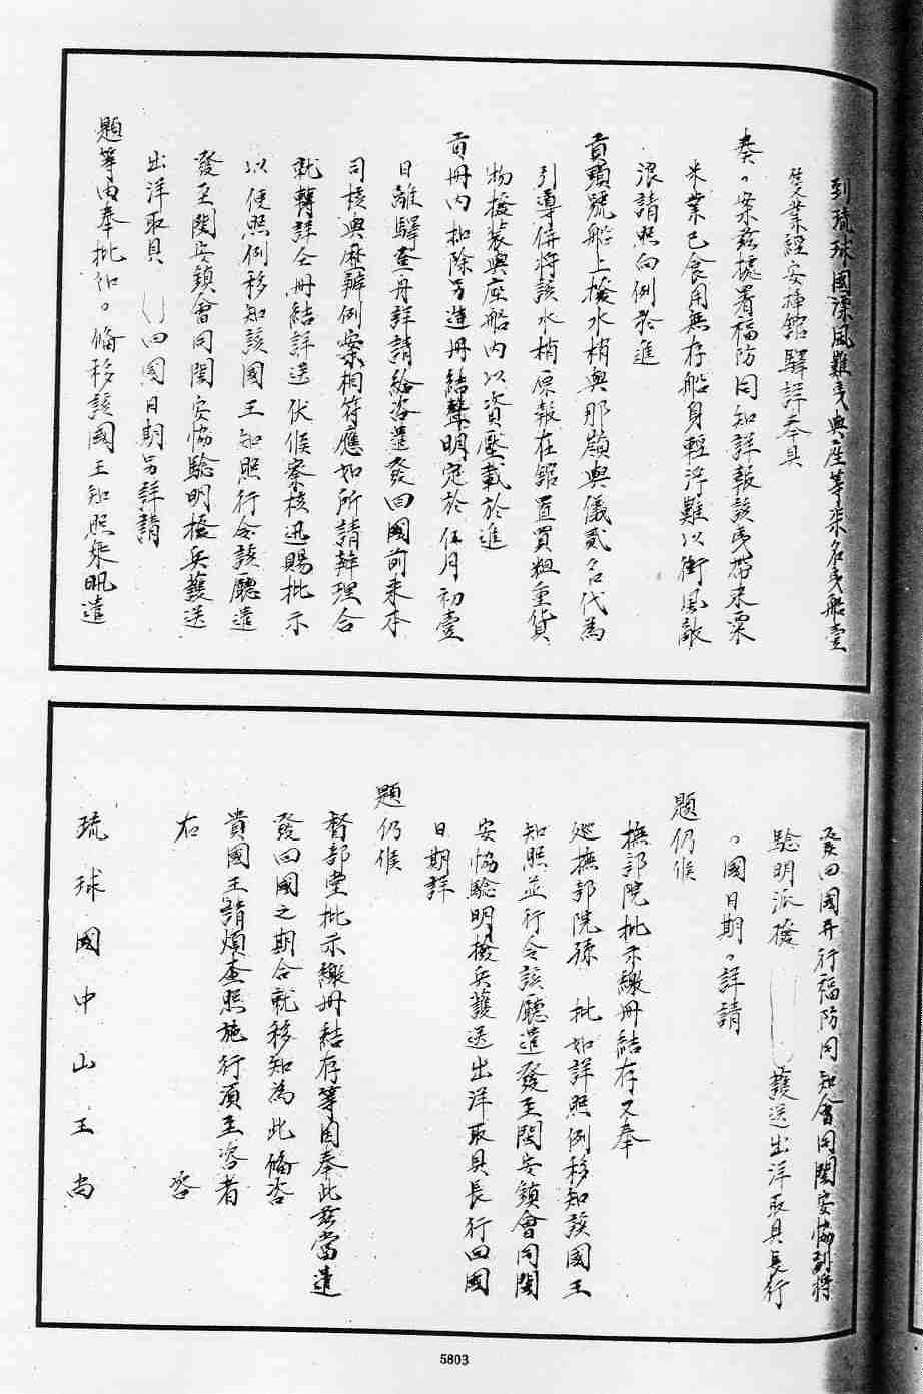 到琉球國漂風難夷與座等柒名夷船壹
隻業經安插館驛詳奉具
奏。案茲據署福防同知詳報該夷帶來粟
米業已食用無存船身輕浮難以衝風敵
浪請照向例於進
貢頭號船上撥水梢與那嶺與儀貳名代為
引導併將該水梢原報在館置買粗重貨
物撥裝與座船內以資壓載於進
貢冊內扣除另造冊結聲明定於伍月初壹
日離驛查舟詳請給咨遣發回國前來本
司核與歷辦例案相符應如所請辦理合
就轉詳仝冊結詳送伏候察核迅賜批示
以便照例移知該國王知照行令該廳遣
發至閩安鎮會同閩安協驗明撥兵護送
出洋取具 回國日期另詳請
題等由奉批如。備移該國王知照柴帆遣
發回國并行福防同知會同閩安協副將
驗明派撥 護送出洋取具長行
。國日期。詳請
題仍候
撫部院批示繳冊結存又奉
巡撫部院孫 批如詳照例移知該國王
知照並行令該廳遣發至閩安鎮會同閩
安協驗明撥兵護送出洋取具長行回國
日期詳
題仍候
督部堂批示繳冊結存等因奉此茲當遣
發回國之期合就移知為此備咨
貴國王請煩查照施行須至咨者
右 咨
琉球國中山王尚
5803